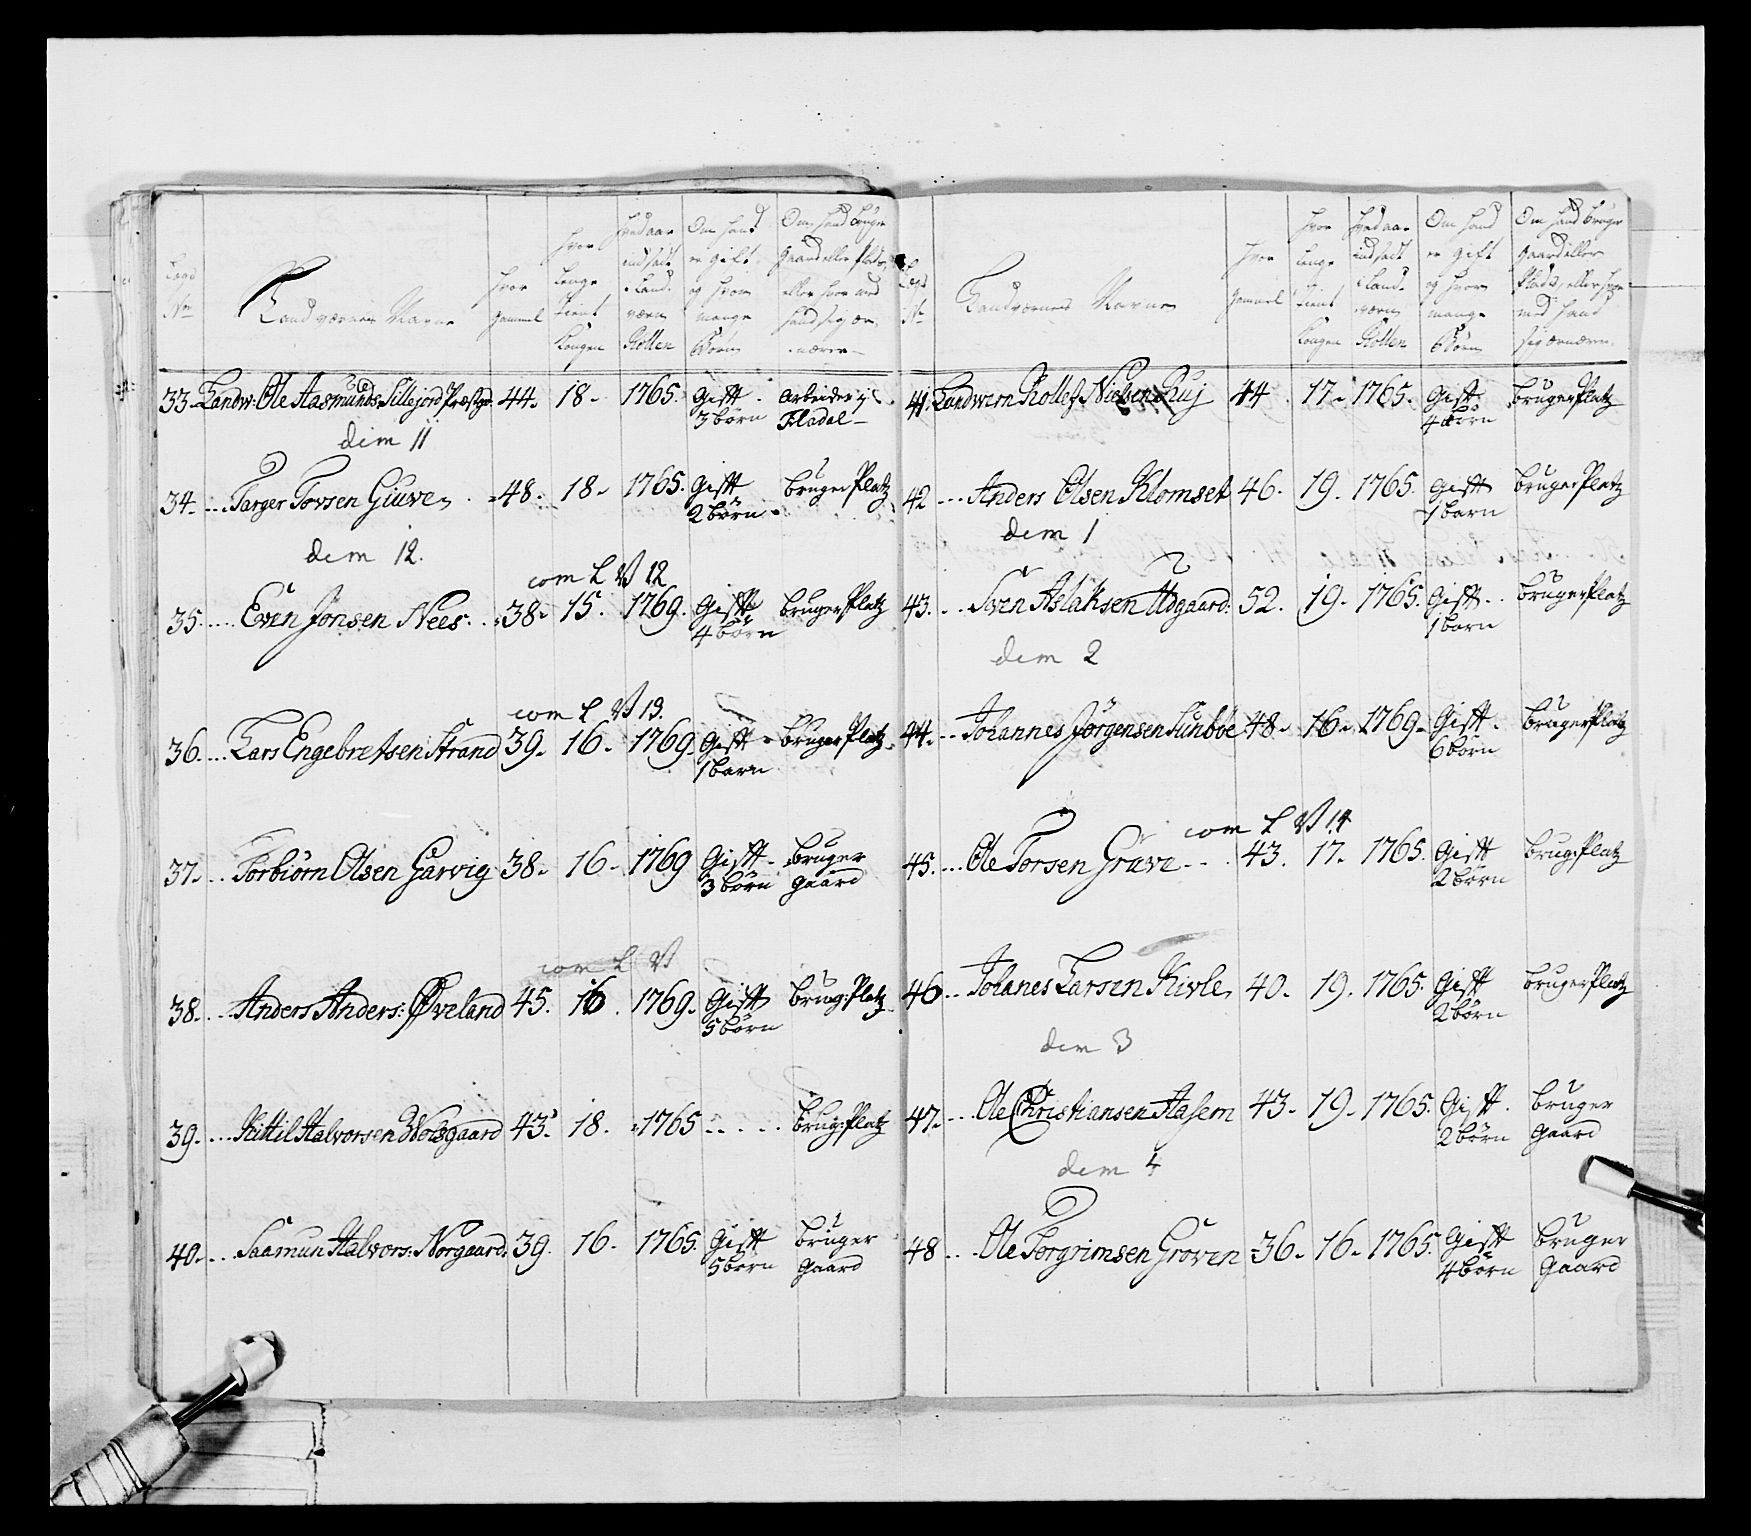 Legd
No
Landværnes Navne
Hvor
gammel
Hvor
lenge
tient
Kongen
Hvad aar
indsadt
i Land-
værn
Rollen
Om hand
er gift
og hvor
mange
Börn
Om hand bruger
Gaard eller Plads,
eller hvor med
hand sig er-
nærer
33. Landw: Ole Aasmunds: Sillejord Præstgr: 44. 18. 1765. Gifft 3 börn Arbeider i Fladal
dim 11
34. Targer Tovsen Giuve 48. 18. 1765. Gifft 2 börn bruger Platz
dem 12.
com L V 12
35. Even Jonsen Nees 38. 15. 1769. Gifft 4 börn bruger Platz
com L V 13.
36. Lars Engebretsen Strand 39. 16. 1769. Gifft 1 barn bruger Platz
37. Torbiörn Olsen Garvig 38. 16. 1769 Gifft 3 börn bruger Gaard
com L V
38. Anders Anders: Øveland 45. 16. 1769. Gifft 5 börn brug: Platz
39. Kittil Halvorsen Wolsgaard 43. 18. 1765 brug: Platz
40. Saamun Halvors: Norgaard: 39. 16. 1765. Gifft 5 börn bruger Gaard
Legd
No
Landværnes Navne
Hvor
gammel
Hvor
lenge
tient
Kongen
Hvad aar
indsadt
i Land-
værn
Rollen
Om hand
er gift
og hvor
mange
Börn
Om hand bruger
Gaard eller
Plads, eller hvor
med hand
sig ernærer.
41. Landwern Rollef Nielsen Ruj 44 17. 1765. Gift 4 börn bruger Platz
42 Anders Olsen Klomset 46. 19. 1765. Gifft 1 barn bruger Platz
dem 1
43. Sven Aslaksen Udgaard: 52. 19. 1765. Gifft 1 barn bruger Platz
dem 2
44. Johannes Jørgensen Sunböe 48. 16. 1769. Gifft 6 börn bruger Platz
com L V 14
45. Ole Torsen Grave 43. 17. 1765. Gifft 2 börn brug: Platz
46. Johanes Larsen Kivle 40. 19. 1765. Gifft 2 börn bruger Platz
dem 3
47. Ole Christiansen Aasem 43. 19. 1765. Gifft 2 börn bruger Gaard
dem 4
48 Ole Torgrimsen Groven 36. 16. 1765. Gifft 4 börn bruger Gaard